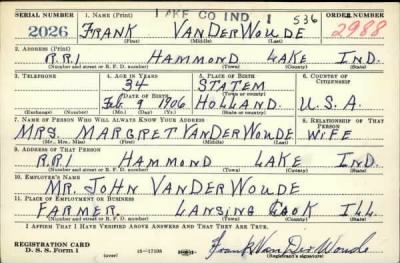 SERIAL NUMBER 1. NAME (Print) LAKE CO IND 1 536 ORDER NUMBER
2026 FRANK VANDERWOUDE 2988
(First) (Middle) (Last)
2. ADDRESS (Print)
R.R.1 HAMMOND LAKE IND.
(Number and street or R. F. D. number) (Town) (County) (State)
3. TELEPHONE 4. AGE IN YEARS 5. PLACE OF BIRTH 6. COUNTRY OF CITIZENSHIP
34 STATEM
DATE OF BIRTH (Town or county)
Feb. 9 1906 HOLLAND. U.S.A.
(Exchange) (Number) (Mo.) (Day) (Yr.) (State or country)
7. NAME OF PERSON WHO WILL ALWAYS KNOW YOUR ADDRESS 8. RELATIONSHIP OF THAT PERSON
MRS. MARGRET VANDERWOUDE WIFE
(Mr., Mrs., Miss) (First) (Middle) (Last)
9. ADDRESS OF THAT PERSON
R.R.1 HAMMOND LAKE IND.
(Number and street or R. F. D. number) (Town) (County) (State)
10. EMPLOYER'S NAME
MR. JOHN VANDERWOUDE
11. PLACE OF EMPLOYMENT OR BUSINESS
FARMER LANSING COOK ILL
(Number and street or R. F. D. number) (Town) (County) (State)
I AFFIRM THAT I HAVE VERIFIED ABOVE ANSWERS AND THAT THEY ARE TRUE.
REGISTRATION CARD
D. S. S. Form 1 (over) 16—17105 Frank Van Der Woude
(Registrant's signature)